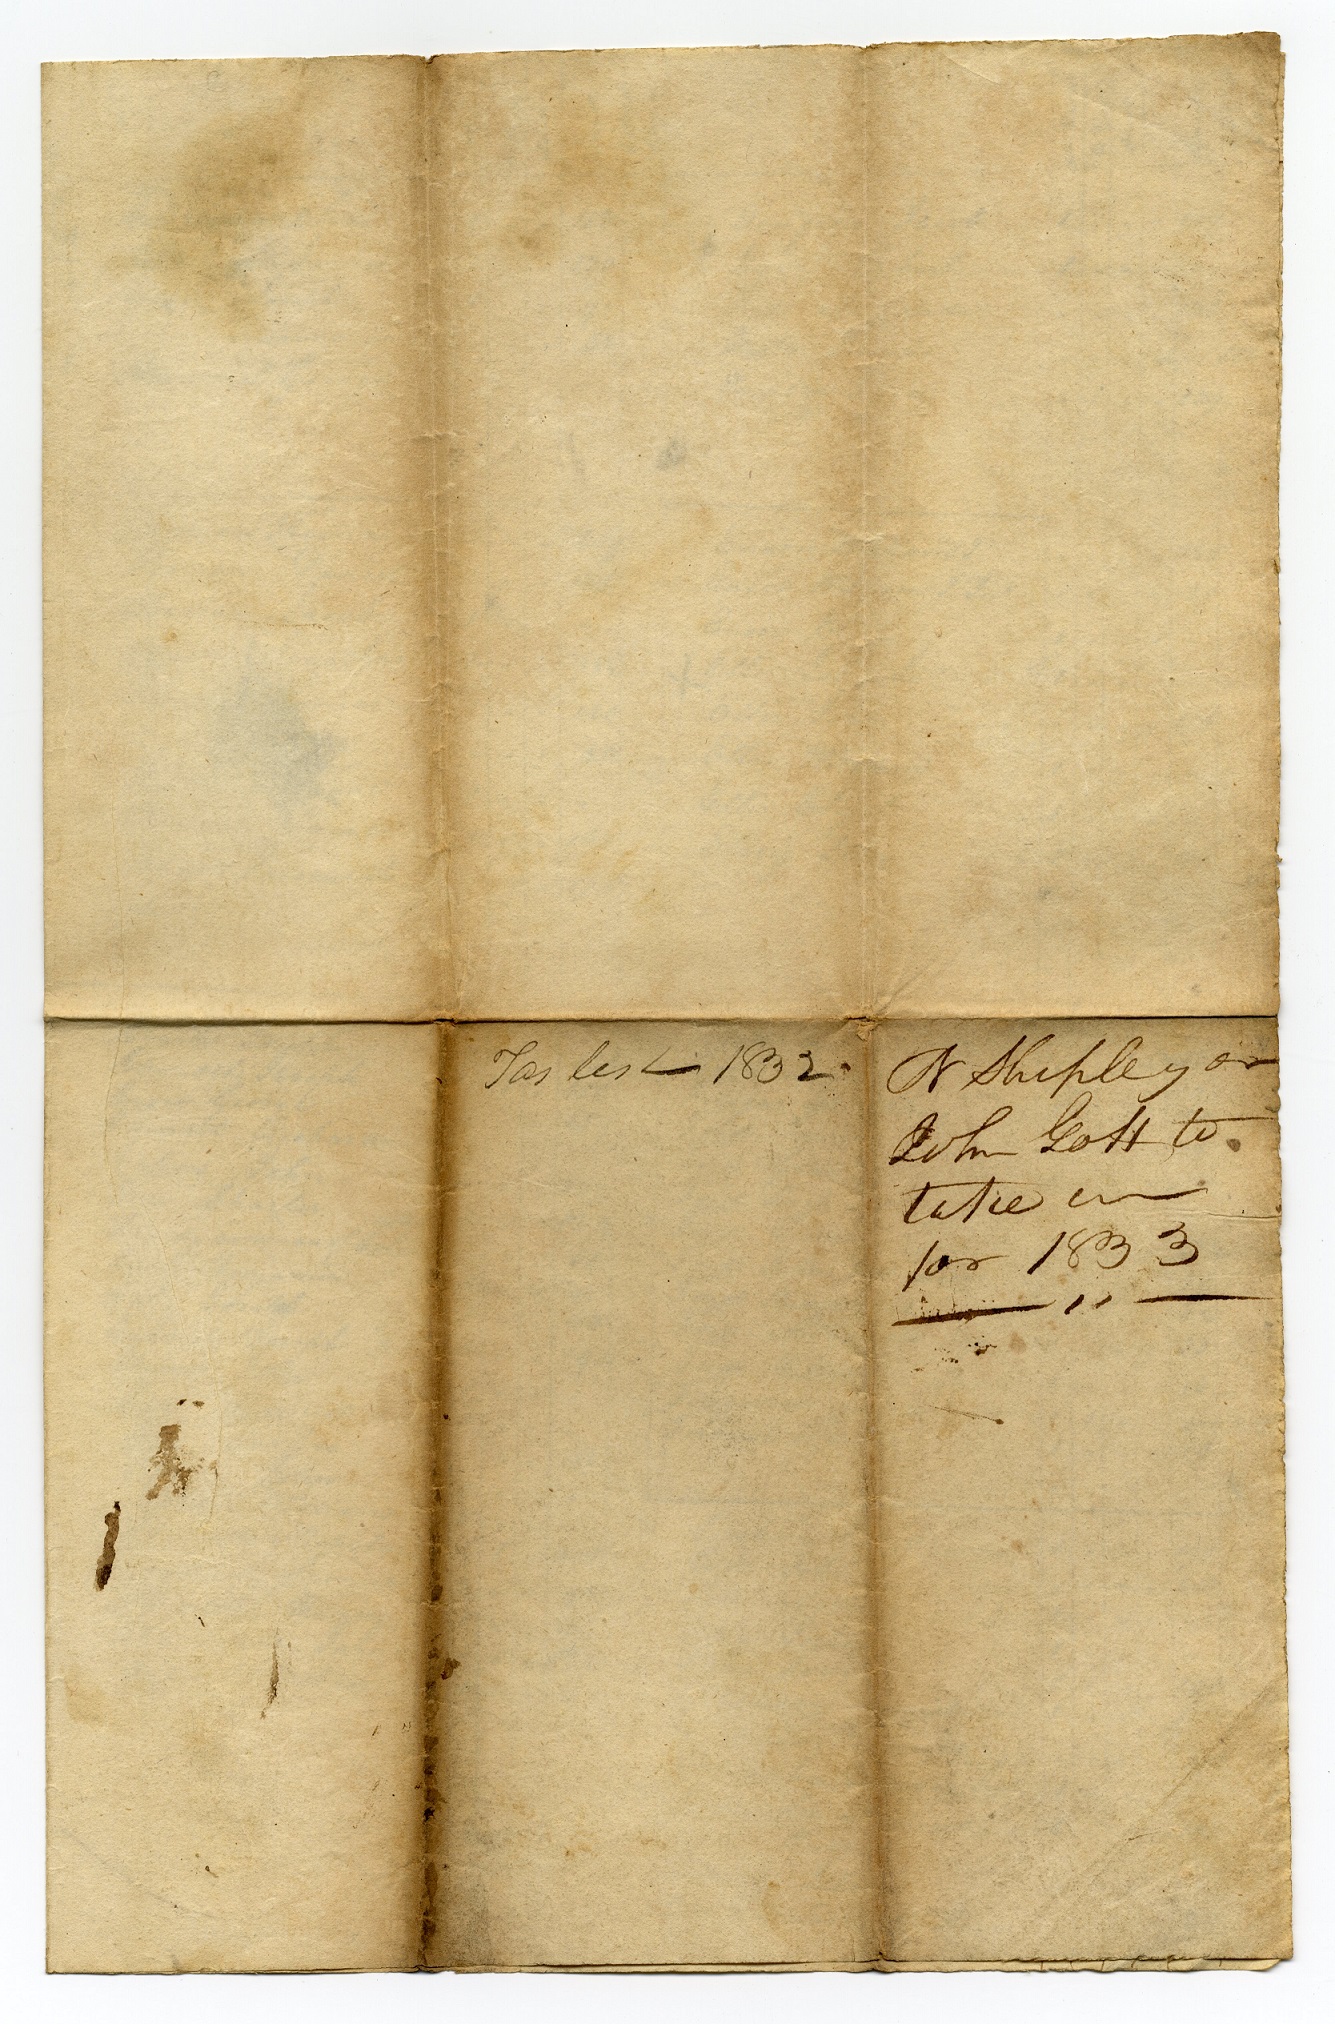 Tax list 1832.
N Shipley or
John Gott to
take in
for 1833